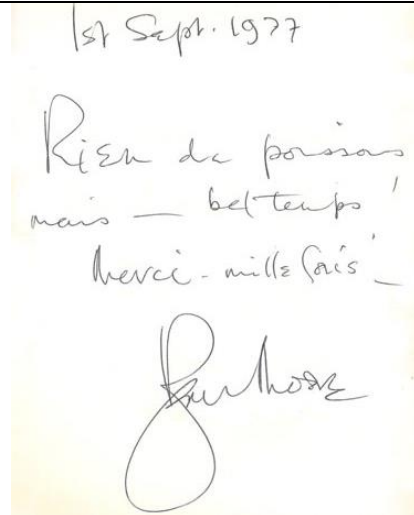 1st Sept. 1977
Rien de poissons
mais — bel temps!
Merci - mille fois -